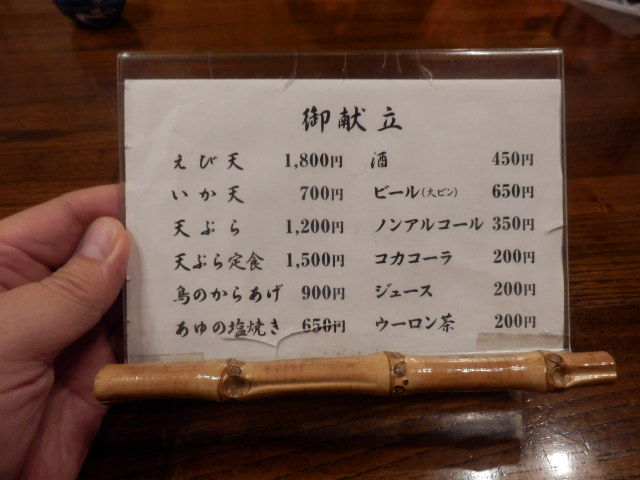 御献立
えび天 1,800円
いか天 700円
天ぷら 1,200円
天ぷら定食 1,500円
鳥のからあげ 900円
あゆの塩焼き 650円
酒 450円
ビール(大ビン) 650円
ノンアルコール 350円
コカコーラ 200円
ジュース 200円
ウーロン茶 200円